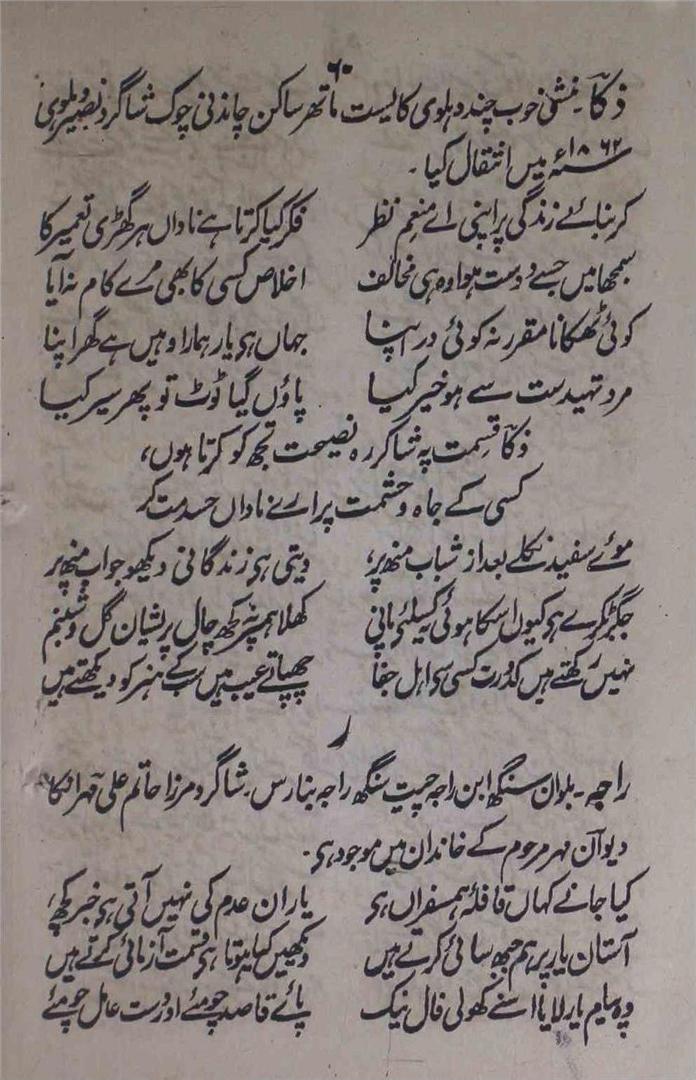 ۶۰
ذکا۔ منشی خوب چند دہلوی کالیست ماتھر ساکن چاندنی چوک شاگرد نصیر دہلوی
۱۸۶۲ء میں انتقال کیا۔
کر بنائے زندگی پر اپنی اے منعم نظر فکر کیا کرتا ہے ناداں ہر گھڑی تعمیر کا
سمجھا میں جسے دوست ہوا وہ ہی مخالف اخلاص کسی کا بھی مرے کام نہ آیا
کوئی ٹھکانا مقرر نہ کوئی در اپنا جہاں ہی یار ہمارا وہیں ہے گھر اپنا
مرد تہیدست سے ہو خیر کیا پاؤں گیا ٹوٹ تو پھر سیر کیا
ذکا قسمت پہ شاکر رہ نصیحت تجھ کو کرتا ہوں،
کسی کے جاہ و حشمت پر ارے ناداں حسد مت کر
موئے سفید نکلے بعد از شباب منھ پر، دیتی ہی زندگانی دیکھو جواب منھ پر
جگر کرے ہی کیوں اسکا ہوئی کسلئے پانی کھلا ہمپر کچھ حال پریشان گل و شبنم
نہیں رکھتے ہیں کدورت کسی سی اہل جفا چھپاتے عیب ہیں سب کے ہنر کو دیکھتے ہیں
ر
راجہ۔ بلوان سنگھ ابن راجہ چیت سنگھ راجہ بنارس۔ شاگرد مرزا حاتم علی مہر انکا
دیوان مہر مرحوم کے خاندان میں موجود ہی۔
کیا جانے کہاں قافلۂ ہمسفراں ہی یاران عدم کی نہیں آتی ہی خبر کچھ،
آستان یار پر ہم جبھ سائی کرتے ہیں دیکھیں کیا ہوتا ہی قسمت آزمائی کرتے ہیں
وہ پیام یار لایا اسنے کھولی فال نیک پائے قاصد چومئے اور دست عامل چومئے